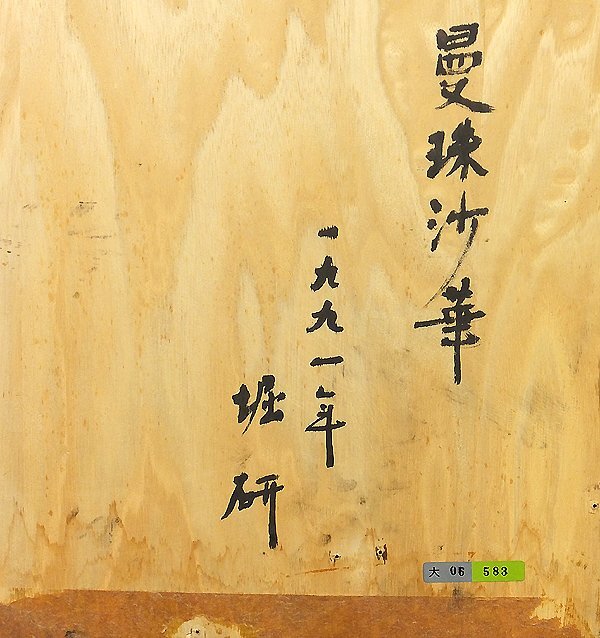 曼珠沙華
一九九一年
堀研
大 06 583